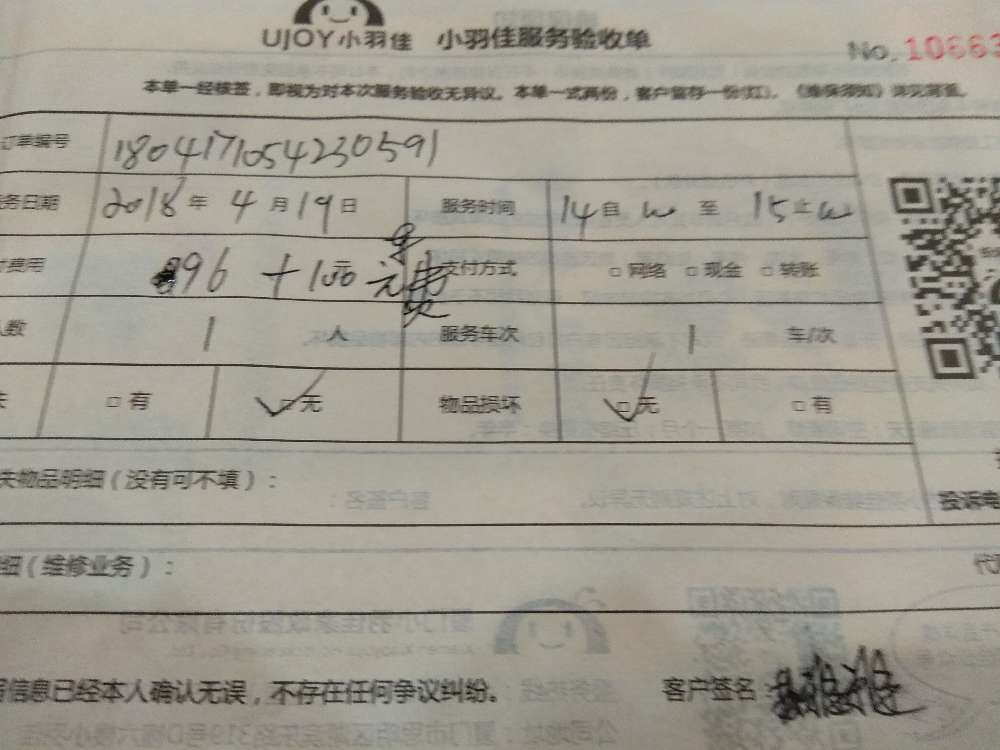 UJOY小羽佳 小羽佳服务验收单
No. 10663
本单一经核签，即视为对本次服务验收无异议。本单一式两份，客户留存一份(红)。《维保须知》详见背面。
订单编号 180417105423059１
务日期 2018年 4月19日 服务时间 14自 至 15止
费用 96 +100元 支付方式 □网络 □现金 □转账
人数 1 人 服务车次 1 车/次
失 □有 □无 物品损坏 □无 □有
失物品明细（没有可不填）：
投诉电
细（维修业务）：
写信息已经本人确认无误，不存在任何争议纠纷。 客户签名：